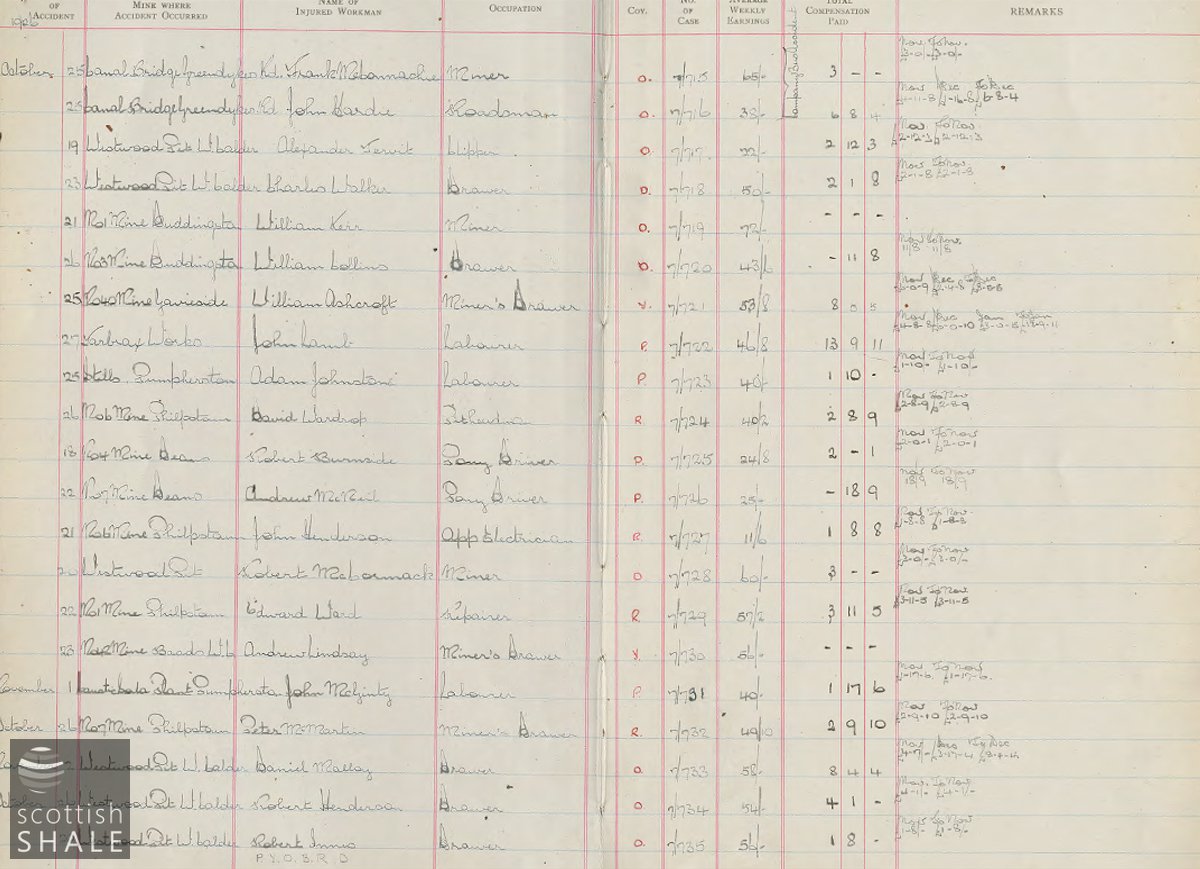 OF ACCIDENT MINE WHERE ACCIDENT OCCURRED NAME OF INJURED WORKMAN OCCUPATION Coy. NO. OF CASE AVERAGE WEEKLY EARNINGS TOTAL COMPENSATION PAID REMARKS
1926
October 25 Canal Bridge Greendykes Rd. Frank McConnachie Miner O. 7/715 65/- 3 - - Nov. To Nov.
£3-0/- £3-0/-
25 Canal Bridge Greendykes Rd John Hardie Roadsman O. 7/716 38/- 6 8 4 Nov Dec To Dec
19 Westwood Pit W. Calder Alexander Jervit Clipper O. 7/717 22/- 2 12 3 Nov. To Nov
£2-12-3 £2-12-3
23 Westwood Pit W. Calder Charles Walker Drawer O. 7/718 50/- 2 1 8 Nov To Nov.
£2-1-8 £2-1-8
21 No1 Mine Duddingston William Kerr Miner O. 7/719 72/- - - -
26 No3 Mine Duddingston William Collins Drawer O. 7/720 43/6 - 11 8 Nov To Nov.
11/8 11/8
25 No40 Mine Gavieside William Ashcroft Miner's Drawer Y. 7/721 53/8 8 0 5 Nov Dec To Dec
27 Tarbrax Works John Lamb Labourer P. 7/722 46/8 13 9 11 Nov Dec Jan To Jan
25 Stills, Pumpherston Adam Johnstone Labourer P. 7/723 40/- 1 10 - Nov To Nov
£1-10- £1-10-
26 No6 Mine Philpstoun David Wardrop Pitheadman R. 7/724 40/2 2 8 9 Nov To Nov
£2-8-9 £2-8-9
18 No4 Mine Deans Robert Burnside Pony Driver P. 7/725 24/8 2 - 1 Nov To Nov
£2-0-1 £2-0-1
22 No7 Mine Deans Andrew McNeil Pony Driver P. 7/726 25/- - 18 9 Nov To Nov
18/9 18/9
21 No6 Mine Philpstoun John Henderson App Electrician R. 7/727 11/6 1 8 8 Nov To Nov.
£1-8-8 £1-8-8
20 Westwood Pit Robert McCormack Miner O 7/728 60/- 3 - - Nov To Nov
£3-0/- £3-0/-
22 No1 Mine Philpstoun Edward Ward Repairer R. 7/729 57/2 3 11 5 Nov To Nov
£3-11-5 £3-11-5
23 No42 Mine Baads W.C Andrew Lindsay Miner's Drawer Y. 7/730 56/- - - -
November 1 Plant Pumpherston John McGinty Labourer P 7/731 40/- 1 17 6 Nov To Nov
£1-17-6 £1-17-6
October 26 No7 Mine Philpstoun Peter McMartin Miner's Drawer R. 7/732 49/10 2 9 10 Nov To Nov
£2-9-10 £2-9-10
2 Westwood Pit W. Calder Daniel Malloy Drawer O. 7/733 58/- 8 4 4 Nov Dec To Dec
October Westwood Pit W. Calder Robert Henderson Drawer O. 7/734 54/- 4 1 - Nov. To Nov
£4-1/- £4-1/-
Westwood Pit W. Calder Robert Innes Drawer O. 7/735 56/- 1 8 - Nov To Nov
£1-8/- £1-8/-
P. Y. O. S. R. D
scottish
SHALE